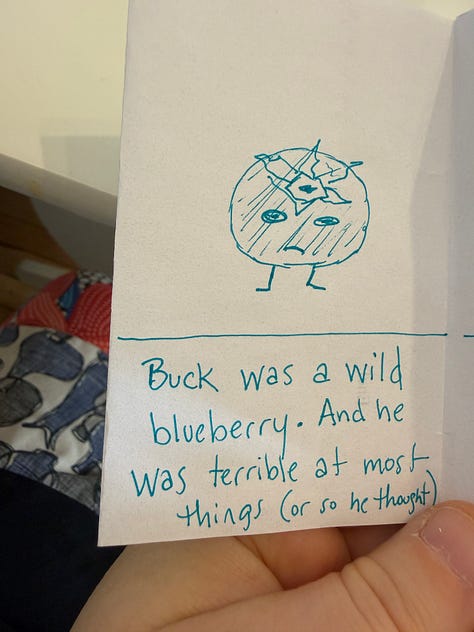 Buck was a wild
blueberry. And he
was terrible at most
things (or so he thought)